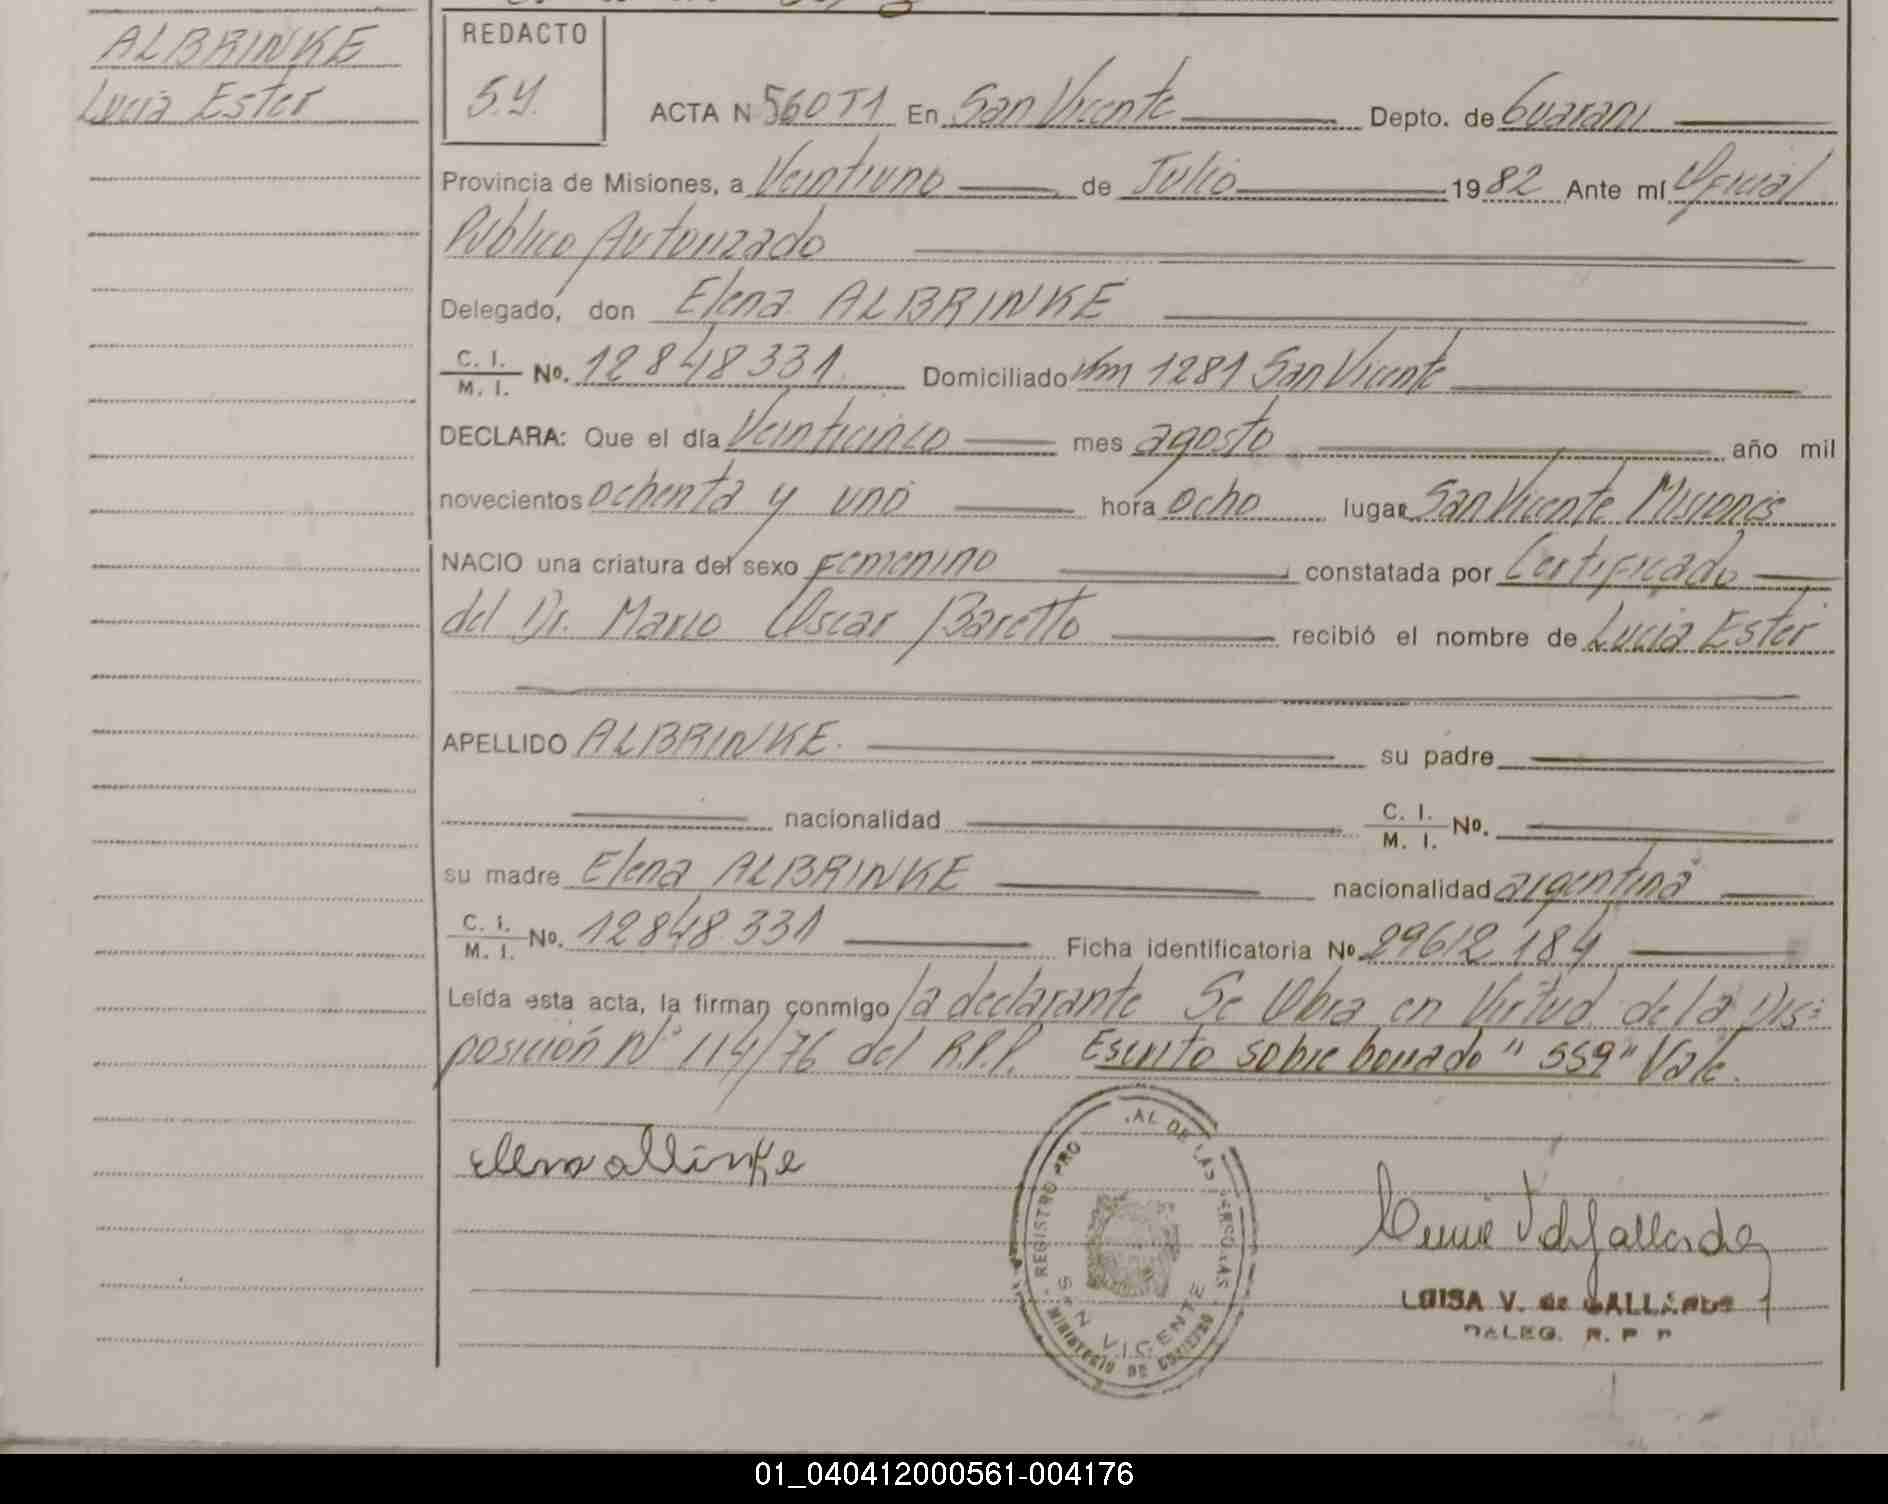 ALBRINKE
Lucia Ester
REDACTO
S.Y.
ACTA N 560T1 En San Vicente Depto. de Guarani
Provincia de Misiones, a Veintiuno de Julio 1982 Ante mí Oficial
Público Autorizado
Delegado, don Elena ALBRINKE
C. I.
M. I. No. 12848331 Domiciliado Km 1281 San Vicente
DECLARA: Que el día Veinticinco mes agosto año mil
novecientos ochenta y uno hora ocho lugar San Vicente Misiones
NACIO una criatura del sexo Femenino constatada por Certificado
del Dr. Mario Oscar Baretto recibió el nombre de Lucia Ester
APELLIDO ALBRINKE. su padre
nacionalidad C. I.
M. I. No.
su madre Elena ALBRINKE nacionalidad argentina
C. I.
M. I. No. 12848331 Ficha identificatoria No 29612184
Leída esta acta, la firman conmigo la declarante Se Obra en Virtud de la Dis-
posición N° 114/76 del R.P.P. Escrito sobre borrado " 559" Vale.
REGISTRO PRO AL DE LAS PERSONAS
SAN VICENTE
MINISTERIO DE GOBIERNO
LUISA V. de GALLARDO
DALEG. R. P P
01_040412000561-004176